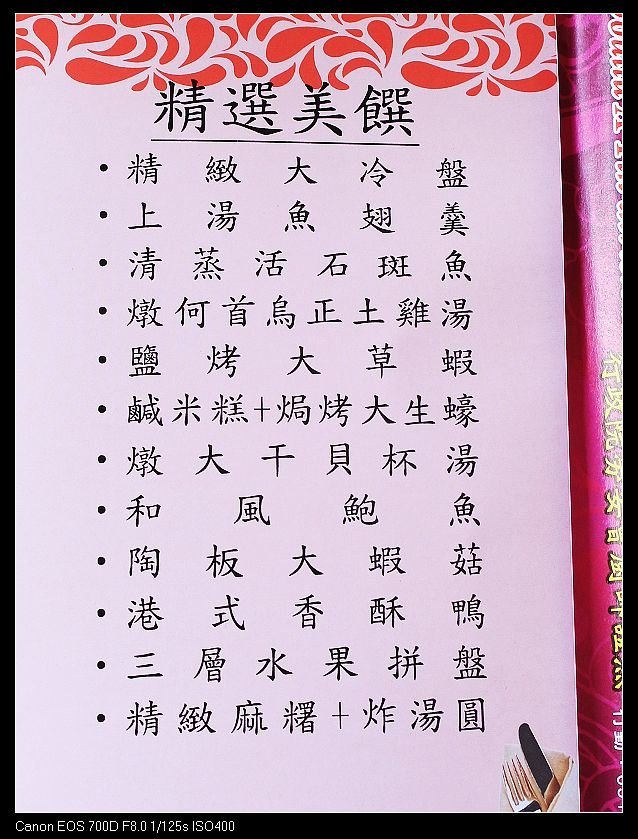 精選美饌
・精緻大冷盤
・上湯魚翅羹
・清蒸活石斑魚
・燉何首烏正土雞湯
・鹽烤大草蝦
・鹹米糕+焗烤大生蠔
・燉大干貝杯湯
・和風鮑魚
・陶板大蝦菇
・港式香酥鴨
・三層水果拼盤
・精緻麻糬+炸湯圓
Canon EOS 700D F8.0 1/125s ISO400